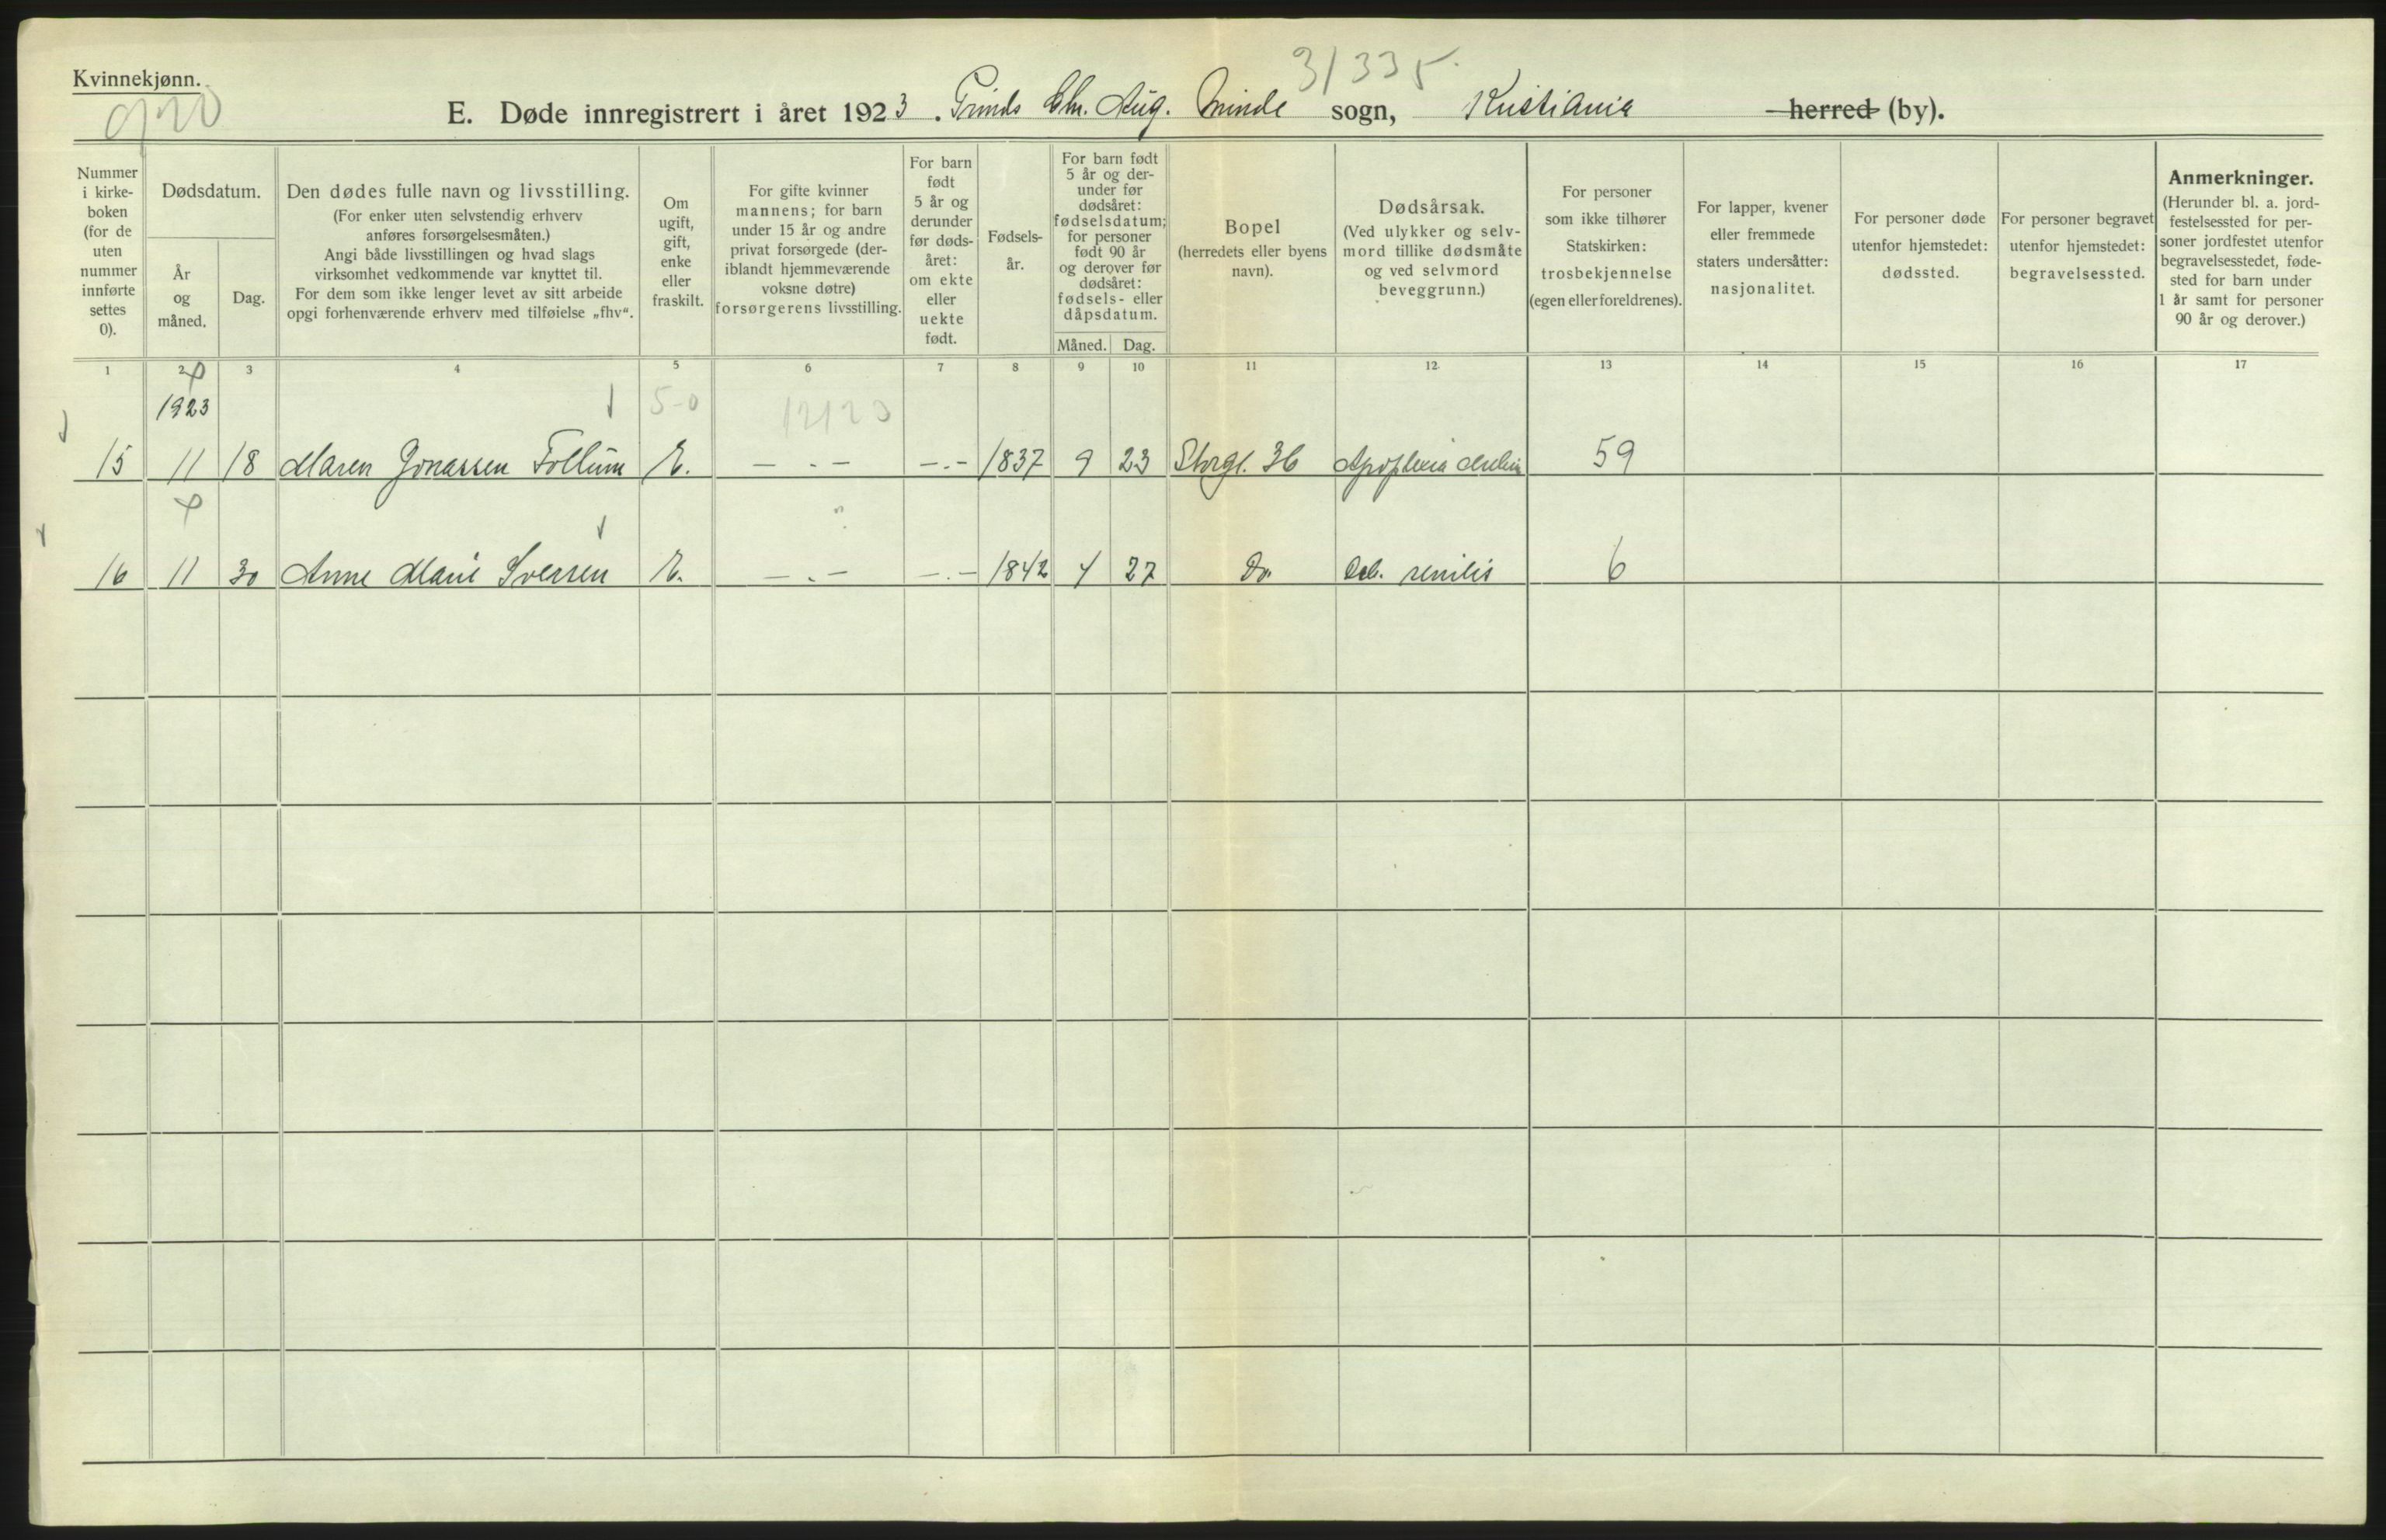 Kvinnekjønn.
31335
E. Døde innregistrert i året 1923. Prinds Chr. Aug. Minde sogn, Kristiania herred (by).
Nummer i kirke- boken (for de uten nummer innførte settes 0).
Dødsdatum.
År og måned.
Dag.
Den dødes fulle navn og livsstilling.
(For enker uten selvstendig erhverv
anføres forsørgelsesmåten.)
Angi både livsstillingen og hvad slags
virksomhet vedkommende var knyttet til.
For dem som ikke lenger levet av sitt arbeide
opgi forhenværende erhverv med tilføielse „fhv“.
Om ugift, gift, enke eller fraskilt.
For gifte kvinner
mannens; for barn
under 15 år og andre
privat forsørgede (der-
iblandt hjemmeværende
voksne døtre)
forsørgerens livsstilling.
For barn født 5 år og derunder før døds- året: om ekte eller uekte født.
Fødsels- år.
For barn født
5 år og der-
under før
dødsåret:
fødselsdatum;
for personer
født 90 år
og derover før
dødsåret:
fødsels- eller
dåpsdatum.
Måned. Dag.
Bopel
(herredets eller byens
navn).
Dødsårsak.
(Ved ulykker og selv-
mord tillike dødsmåte
og ved selvmord
beveggrunn.)
For personer
som ikke tilhører
Statskirken:
trosbekjennelse
(egen eller foreldrenes).
For lapper, kvener
eller fremmede
staters undersåtter:
nasjonalitet.
For personer døde
utenfor hjemstedet:
dødssted.
For personer begravet
utenfor hjemstedet:
begravelsessted.
Anmerkninger.
(Herunder bl. a. jord-
festelsessted for per-
soner jordfestet utenfor
begravelsesstedet, føde-
sted for barn under
1 år samt for personer
90 år og derover.)
1 2 3 4 5 6 7 8 9 10 11 12 13 14 15 16 17
1923 5-0 12123
15 11 18 Maren Jonassen Follum E. — . — — . — 1837 9 23 Storgt. 36 Apoplexia 59
16 11 30 Anne Marie Iversen E. — . — — . — 1842 4 27 Do. Deb. senilis 6